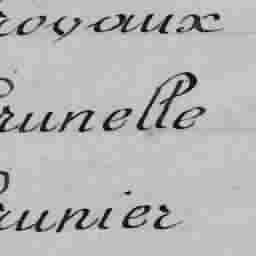 royaux
runelle
runier